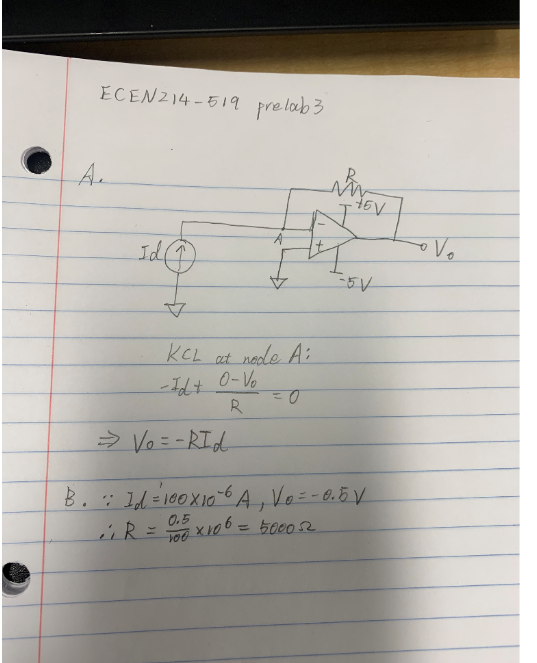 ECEN214-519 prelab3
A.
R
+5V
-
A
+
Id
Vo
-5V
KCL at node A:
-Id + (0-Vo)/R = 0
⇒ Vo = -RId
B. ∵ Id = 100×10⁻⁶ A, Vo = -0.5 V
∴ R = 0.5/100 × 10⁶ = 5000Ω